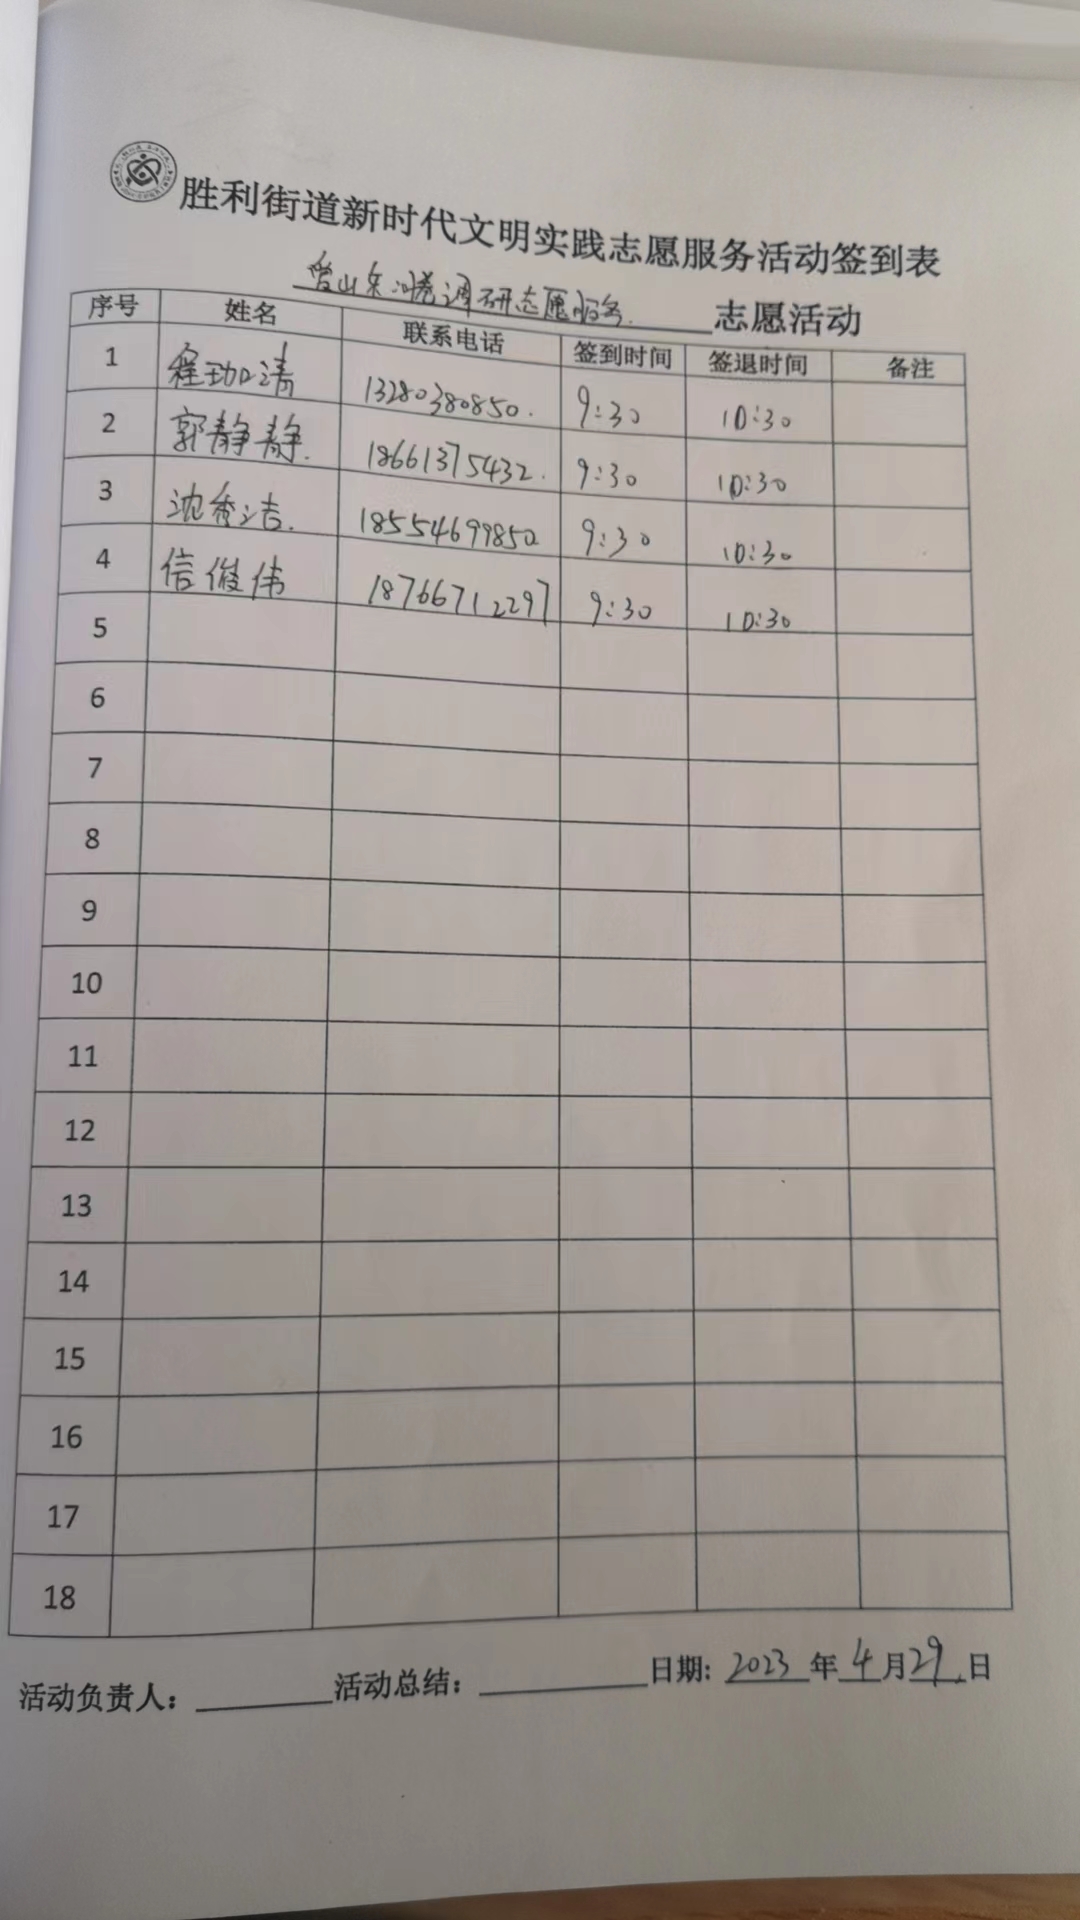 胜利街道新时代文明实践志愿服务活动签到表
山东问卷调研志愿服务 志愿活动
序号 姓名 联系电话 签到时间 签退时间 备注
1 程 清 13280380850. 9:30 10:30
2 郭静静. 18661375432. 9:30 10:30
3 沈秀洁. 18554699850 9:30 10:30
4 信俊伟 18766712297 9:30 10:30
5
6
7
8
9
10
11
12
13
14
15
16
17
18
活动负责人： 活动总结： 日期: 2023 年 4 月 29 日